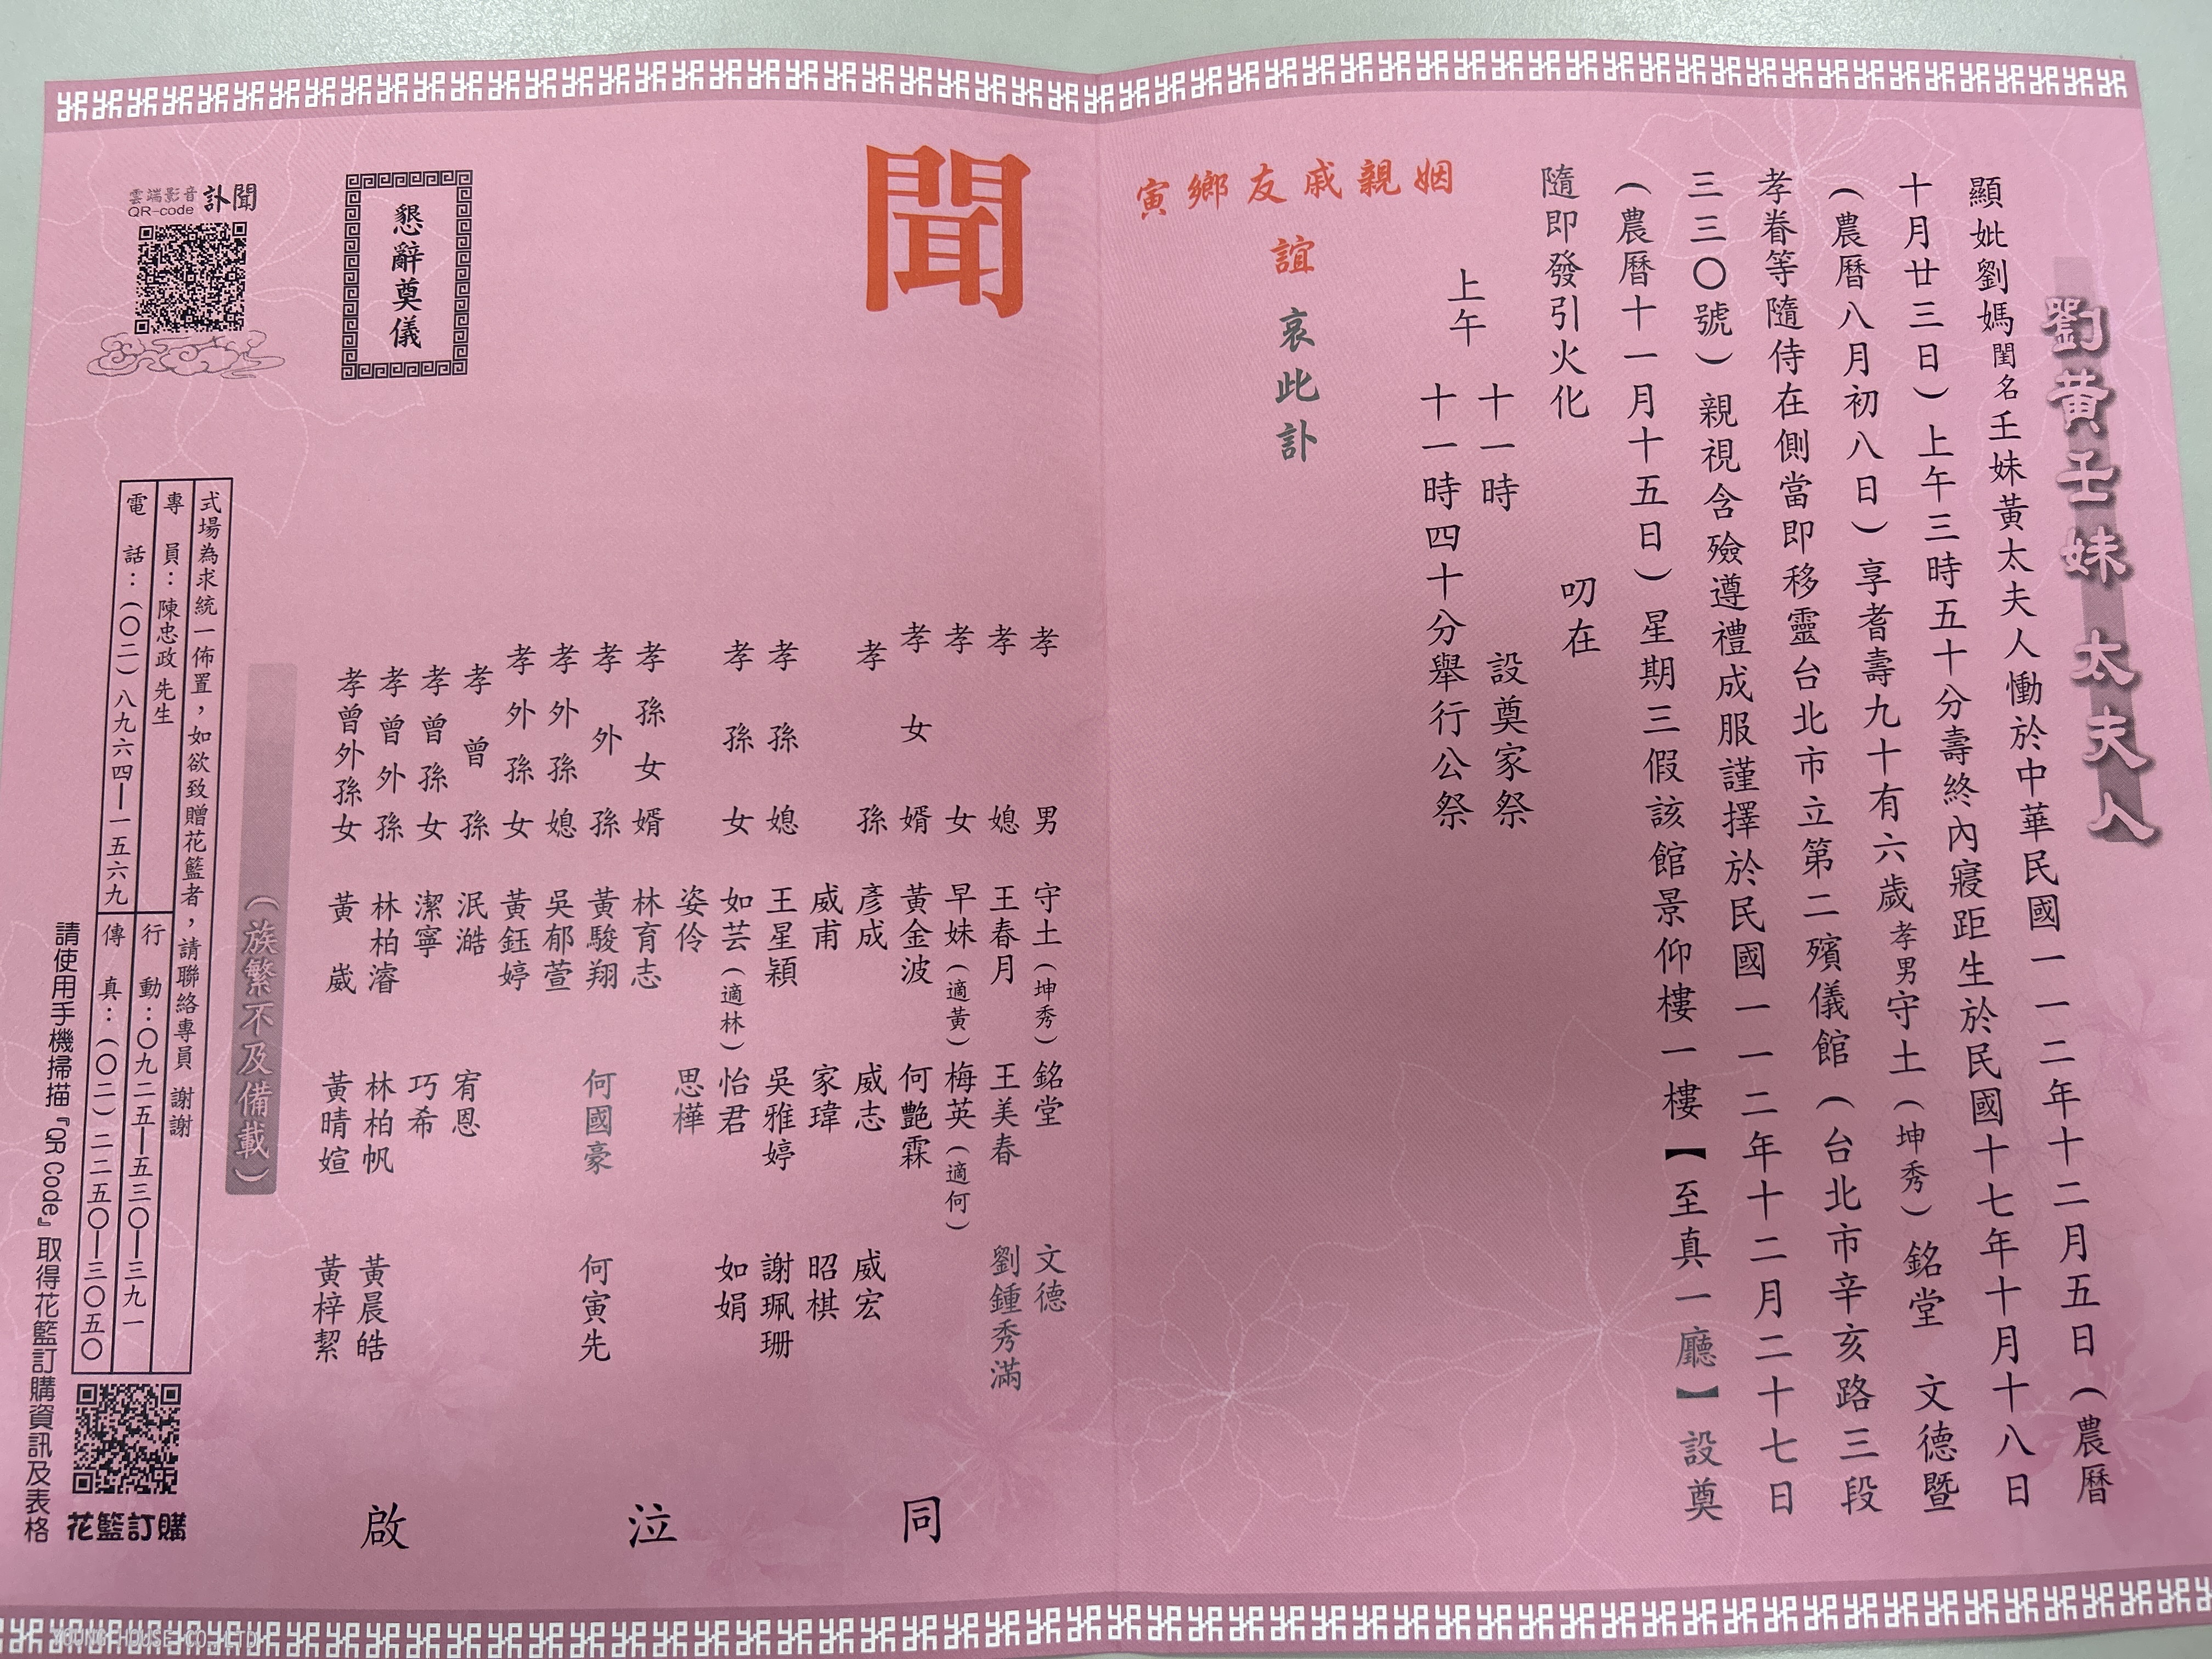 劉黃壬妹太夫人
顯妣劉媽閨名壬妹黃太夫人慟於中華民國一一二年十二月五日（農曆
十月廿三日）上午三時五十分壽終內寢距生於民國十七年十月十八日
（農曆八月初八日）享耆壽九十有六歲孝男守土（坤秀）銘堂　文德暨
孝眷等隨侍在側當即移靈台北市立第二殯儀館（台北市辛亥路三段
三三〇號）親視含殮遵禮成服謹擇於民國一一二年十二月二十七日
（農曆十一月十五日）星期三假該館景仰樓一樓【至真一廳】設奠
隨即發引火化　叨在
上午
十一時　設奠家祭
十一時四十分舉行公祭
姻親戚友鄉寅
誼
哀此訃
聞
孝男　守土（坤秀）　銘堂　文德
孝媳　王春月　王美春　劉鍾秀滿
孝女　早妹（適黃）　梅英（適何）
孝女婿　黃金波　何艷霖
孝孫　彥成　威志　威宏
威甫　家瑋　昭棋
孝孫媳　王星穎　吳雅婷　謝珮珊
孝孫女　如芸（適林）　怡君　如娟
姿伶　思樺
孝孫女婿　林育志
孝外孫　黃駿翔　何國豪　何寅先
孝外孫媳　吳郁萱
孝外孫女　黃鈺婷
孝曾孫　泯澔　宥恩
孝曾孫女　潔寧　巧希
孝曾外孫　林柏濬　林柏帆　黃晨皓
孝曾外孫女　黃崴　黃晴媗　黃梓絜
同泣啟
（族繁不及備載）
懇辭奠儀
雲端影音
QR-code
訃聞
式場為求統一佈置，如欲致贈花籃者，請聯絡專員　謝謝
專員：陳忠政先生
行動：〇九二五—五三〇—三九一
電話：（〇二）八九六四—一五六九
傳真：（〇二）二二五〇—三〇五〇
請使用手機掃描『QR Code』取得花籃訂購資訊及表格
花籃訂購
YOUNG HOUSE CO.,LTD